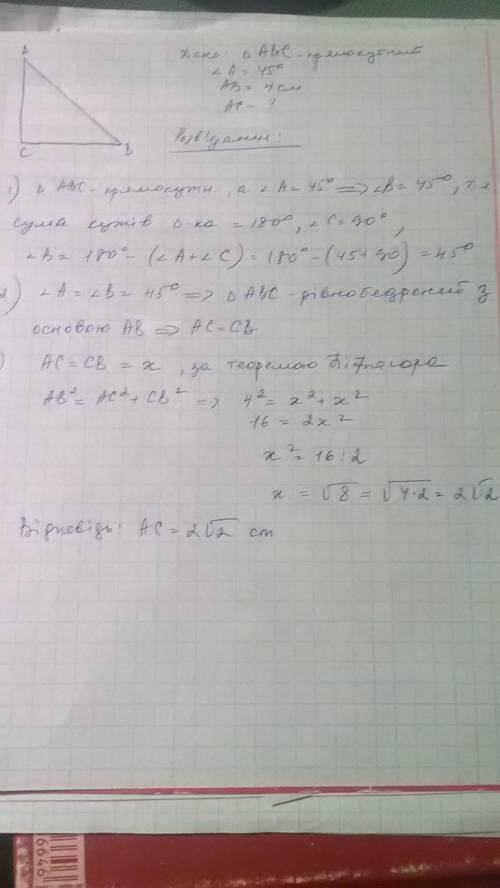 A
C
B
Дано: Δ ABC - прямокутний
∠A = 45°
AB = 4 см
AC - ?
Розв'язання:
1) Δ ABC - прямокутн, а ∠A = 45° => ∠B = 45°, т.я
сума кутів Δ-ка = 180°, ∠C = 90°,
∠B = 180° - (∠A + ∠C) = 180° - (45 + 90) = 45°
2) ∠A = ∠B = 45° => Δ ABC - рівнобедрений з
основою AB => AC = CB
) AC = CB = x, за теоремою Піфагора
AB² = AC² + CB² => 4² = x² + x²
16 = 2x²
x² = 16 : 2
x = √8 = √4·2 = 2√2
Відповідь: AC = 2√2 cm